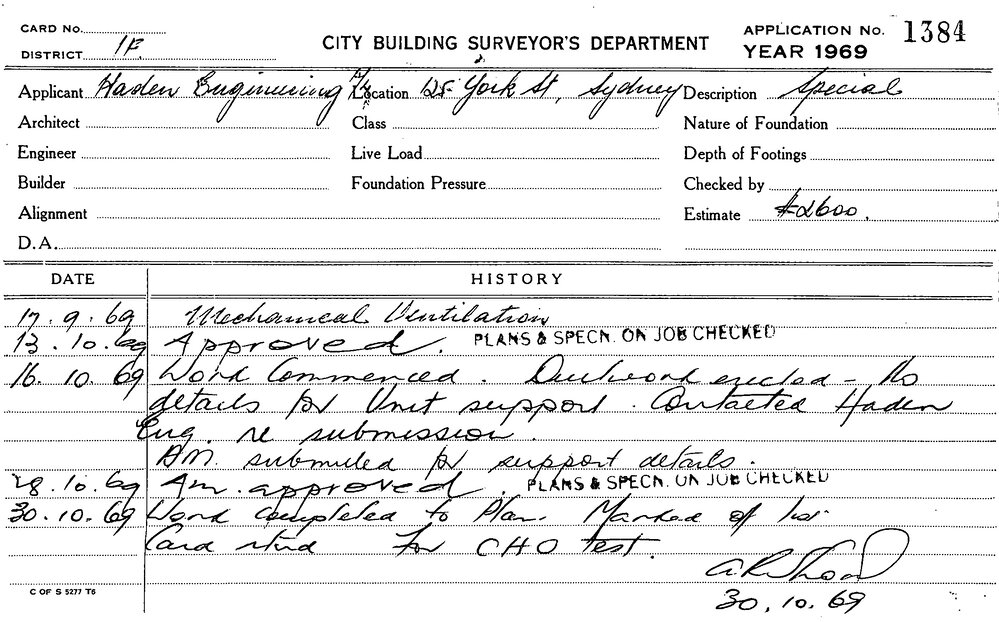 CARD No.
DISTRICT 1F
CITY BUILDING SURVEYOR'S DEPARTMENT
APPLICATION No. 1384
YEAR 1969
Applicant Haden Engineering P/L Location 125 York St, Sydney Description Special
Architect Class Nature of Foundation
Engineer Live Load Depth of Footings
Builder Foundation Pressure Checked by
Alignment Estimate $2600.
D.A.
DATE HISTORY
17.9.69 Mechanical Ventilation
13.10.69 Approved. PLANS & SPECN. ON JOB CHECKED
16.10.69 Work Commenced. Ductwork erected - No
details for Unit support. Contacted Haden
Eng. re submission.
Am. submitted for support details.
28.10.69 Am. approved. PLANS & SPECN. ON JOB CHECKED
30.10.69 Work completed to Plan. Marked off
Card For CHO test.
30.10.69
C OF S 5277 T6